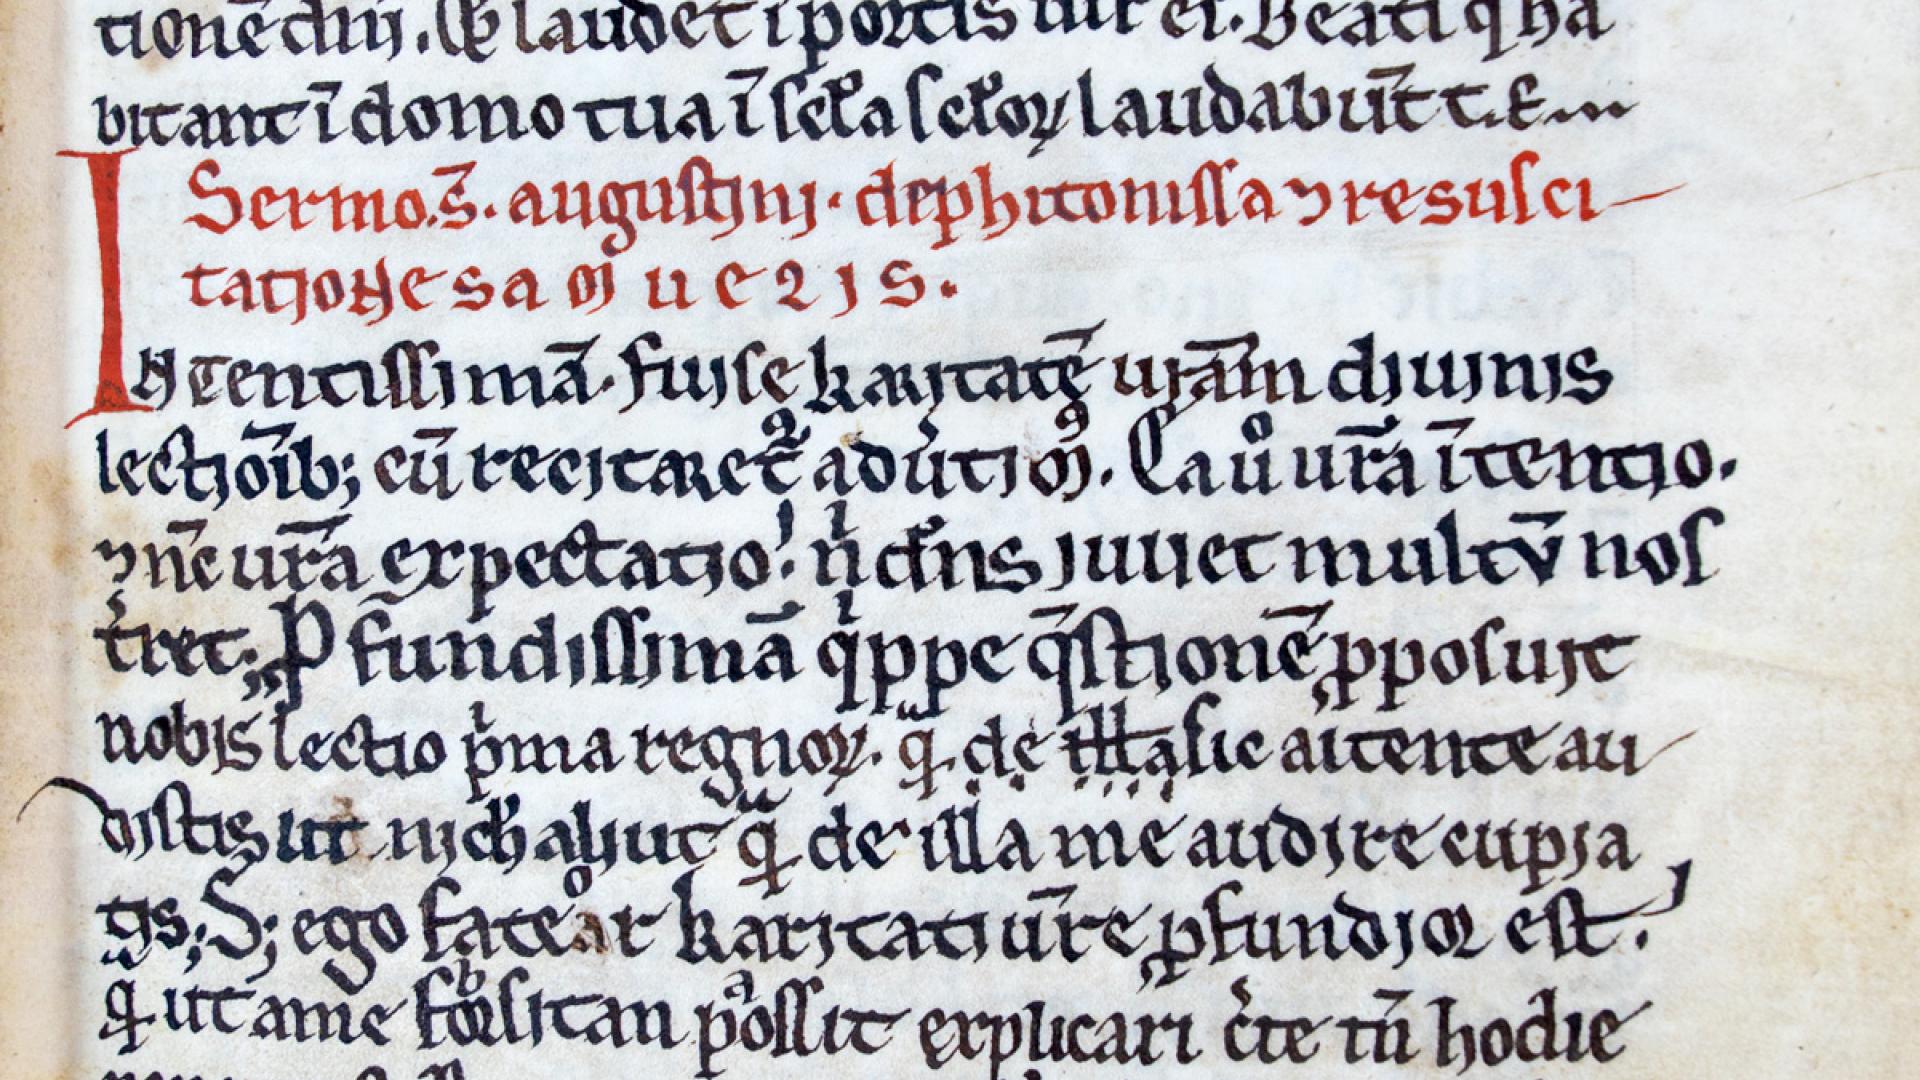 tionē dn̄i. Ut laudet ī portis tur ei. Beati q̇ ha
bitant ī domo tua ī sclꝰa sclꝰoꝝ laudabūt t. Em
Sermo. s̄. augustini. de phitonissa ⁊ resusci
tatione samuelis.
Intentissimā. fuisse karitatē ur̄am diuinis
lectiōib; cū recitarētᷣ aduˈtimꝰ. Cauͦ ur̄a ītentio.
⁊ n̄c ur̄a expectatio! nͥ dn̄s juuet multū nos
tˈret; P fundissimā qͥppe q̄stionē ꝓposuit
nobis lectio pͥma regnoꝝ. qͣ de illa sic aītente au
distis ut nich̄ aliut qͣ de illa me audire cupia
tis; S; ego fateor karitati ur̄e ꝓfundior est.
qͣ ut a me forsitan possit explicari cˈte tn̄ hodie